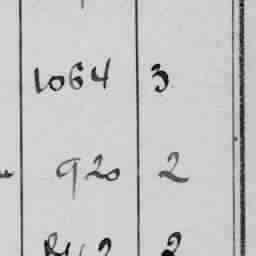 1064 3
920 2